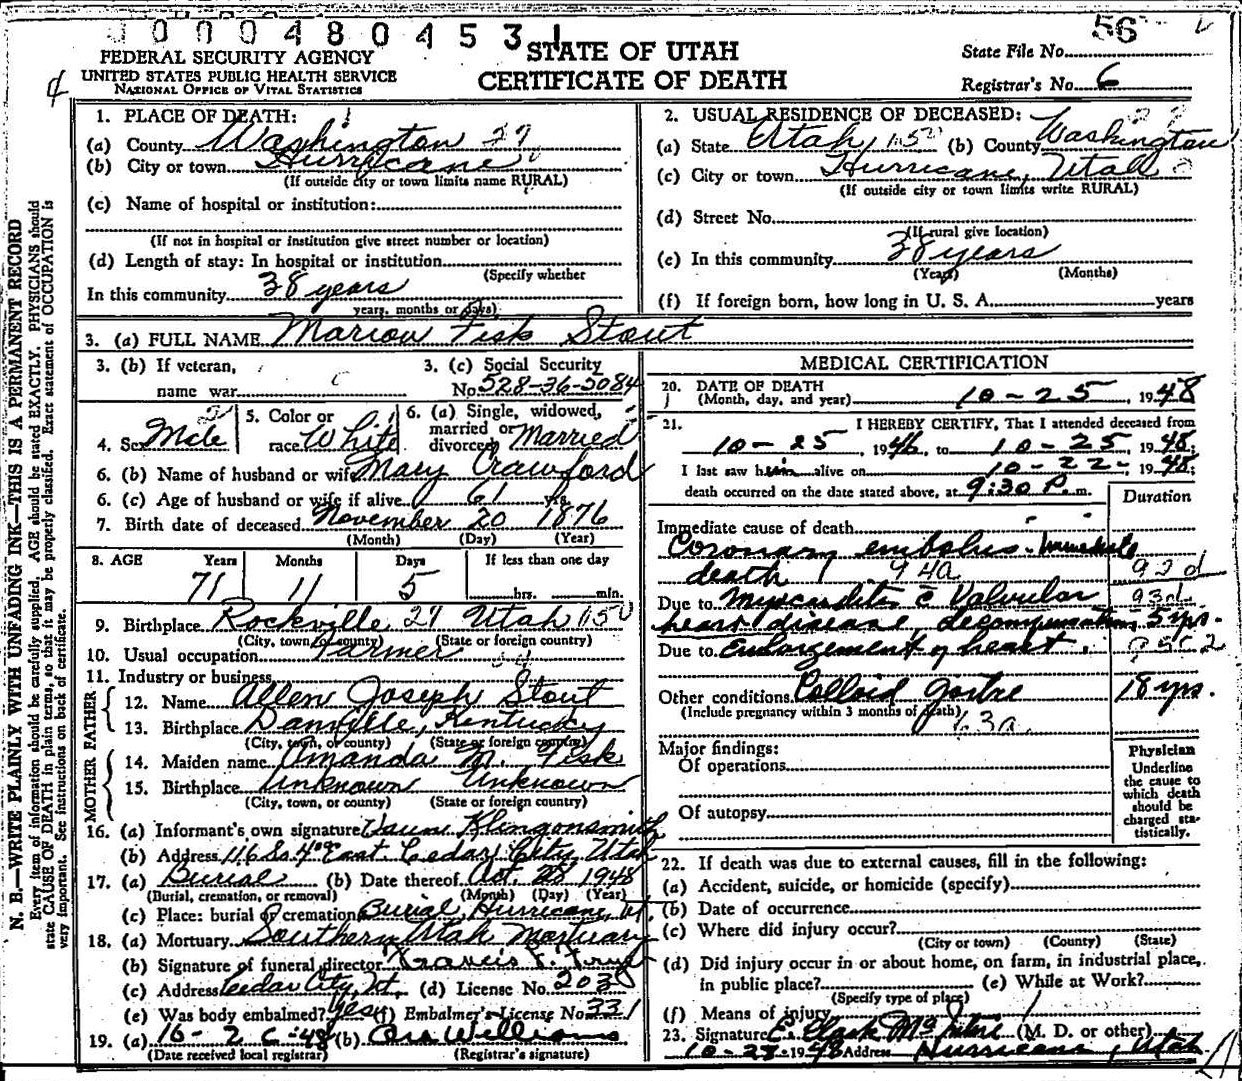 0000480453
FEDERAL SECURITY AGENCY
UNITED STATES PUBLIC HEALTH SERVICE
NATIONAL OFFICE OF VITAL STATISTICS
STATE OF UTAH
CERTIFICATE OF DEATH
State File No. 56
Registrar's No. 6
N. B.—WRITE PLAINLY WITH UNFADING INK—THIS IS A PERMANENT RECORD
Every item of information should be carefully supplied. AGE should be stated EXACTLY. PHYSICIANS should
state CAUSE OF DEATH in plain terms, so that it may be properly classified. Exact statement of OCCUPATION is
very important. See instructions on back of certificate.
1. PLACE OF DEATH:
(a) County Washington 27
(b) City or town Hurricane
(If outside city or town limits name RURAL)
(c) Name of hospital or institution:
(If not in hospital or institution give street number or location)
(d) Length of stay: In hospital or institution
(Specify whether
In this community 38 years
years, months or days)
2. USUAL RESIDENCE OF DECEASED:
(a) State Utah (b) County Washington
(c) City or town Hurricane, Utah
(If outside city or town limits write RURAL)
(d) Street No.
(If rural give location)
(e) In this community 38 years
(Years) (Months)
(f) If foreign born, how long in U. S. A. years
3. (a) FULL NAME Marion Fisk Stout
3. (b) If veteran,
name war
3. (c) Social Security
No. 528-36-5084
4. Sex Male
5. Color or
race White
6. (a) Single, widowed,
married or
divorced Married
6. (b) Name of husband or wife Mary Crawford
6. (c) Age of husband or wife if alive 61 yrs.
7. Birth date of deceased November 20 1876
(Month) (Day) (Year)
8. AGE Years Months Days If less than one day
71 11 5 hrs. min.
9. Birthplace Rockville 27 Utah
(City, town, or county) (State or foreign country)
10. Usual occupation Farmer
11. Industry or business
FATHER
12. Name Allen Joseph Stout
13. Birthplace Danville, Kentucky
(City, town, or county) (State or foreign country)
MOTHER
14. Maiden name Amanda M. Fisk
15. Birthplace Unknown Unknown
(City, town, or county) (State or foreign country)
16. (a) Informant's own signature Klingonsmith
(b) Address 116 So. 4th East. Cedar City, Utah
17. (a) Burial (b) Date thereof Oct. 28 1948
(Burial, cremation, or removal) (Month) (Day) (Year)
(c) Place: burial or cremation Burial, Hurricane, Ut.
18. (a) Mortuary Southern Utah Mortuary
(b) Signature of funeral director
(c) Address Cedar City, Ut. (d) License No. 203
(e) Was body embalmed? Yes (f) Embalmer's License No. 331
19. (a) 10-26-48 (b) Williams
(Date received local registrar) (Registrar's signature)
MEDICAL CERTIFICATION
20. DATE OF DEATH
(Month, day, and year) 10-25, 1948
21. I HEREBY CERTIFY, That I attended deceased from
10-25, 1946, to 10-25, 1948;
I last saw him alive on 10-22-, 1948;
death occurred on the date stated above, at 9:30 P. m.
Duration
Immediate cause of death
Coronary embolus. Immediate
death 94a 92d
Due to Myocarditis c̄ Valvular 93d
heart disease, decompensation 5 yrs.
Due to Enlargement of heart.
Other conditions Colloid goitre 18 yrs.
(Include pregnancy within 3 months of death) 63a
Major findings:
Of operations
Of autopsy
Physician
Underline
the cause to
which death
should be
charged sta-
tistically.
22. If death was due to external causes, fill in the following:
(a) Accident, suicide, or homicide (specify)
(b) Date of occurrence
(c) Where did injury occur?
(City or town) (County) (State)
(d) Did injury occur in or about home, on farm, in industrial place,
in public place? (e) While at Work?
(Specify type of place)
(f) Means of injury
23. Signature E. Clark McIntire (M. D. or other)
10-28-1948 Address Hurricane, Utah